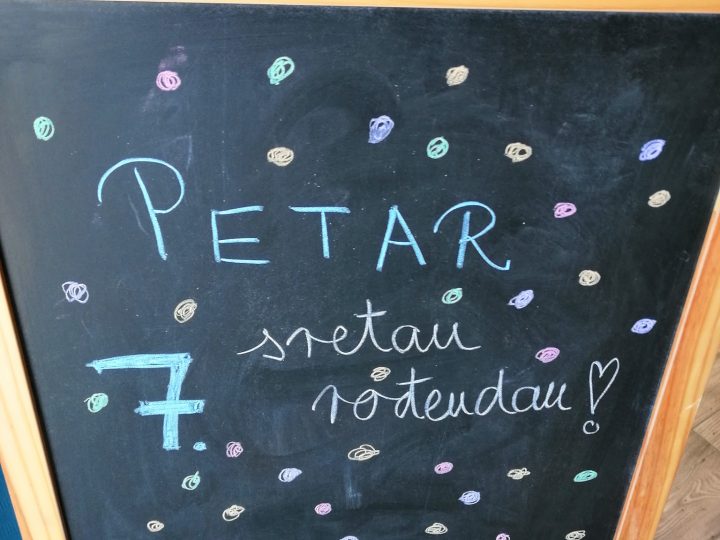 PETAR
7. sretan
rođendan!